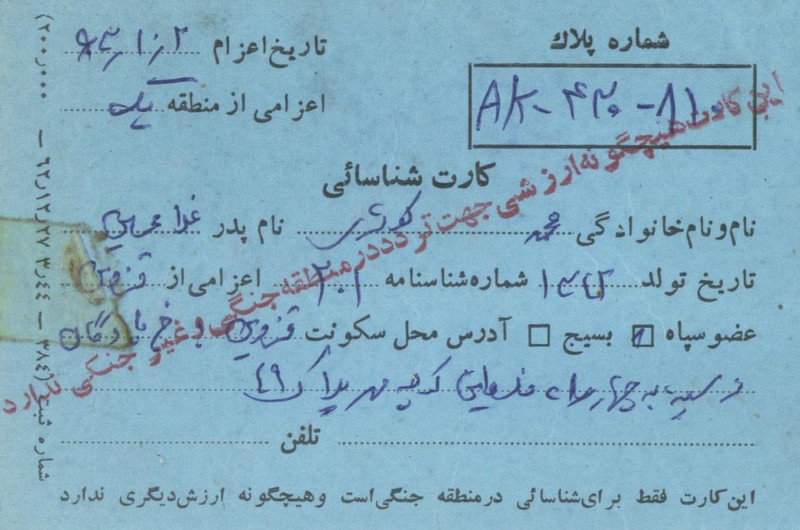 شماره پلاك
تاریخ اعزام
AK-430-810
اعزامی از منطقه یک
کارت شناسائی
نام و نام خانوادگی محمد نام پدر غلامحسین
تاریخ تولد ۱۳۴۲ شماره شناسنامه ۳۰۱ اعزامی از قزوین
عضو سپاه بسیج آدرس محل سکونت قزوین خ
نرسیده به چهارراه کوچه مهر پلاک ۴۹
تلفن
این کارت فقط برای شناسائی در منطقه جنگی است و هیچگونه ارزش دیگری ندارد
این کارت هیچگونه ارزشی جهت تردد در منطقه جنگی و غیر جنگی ندارد
شماره ثبت (۳۸۴ – ۳٫۴۴ ۶۲٫۱۲٫۲۷ – ۲۰۰٫۰۰۰)